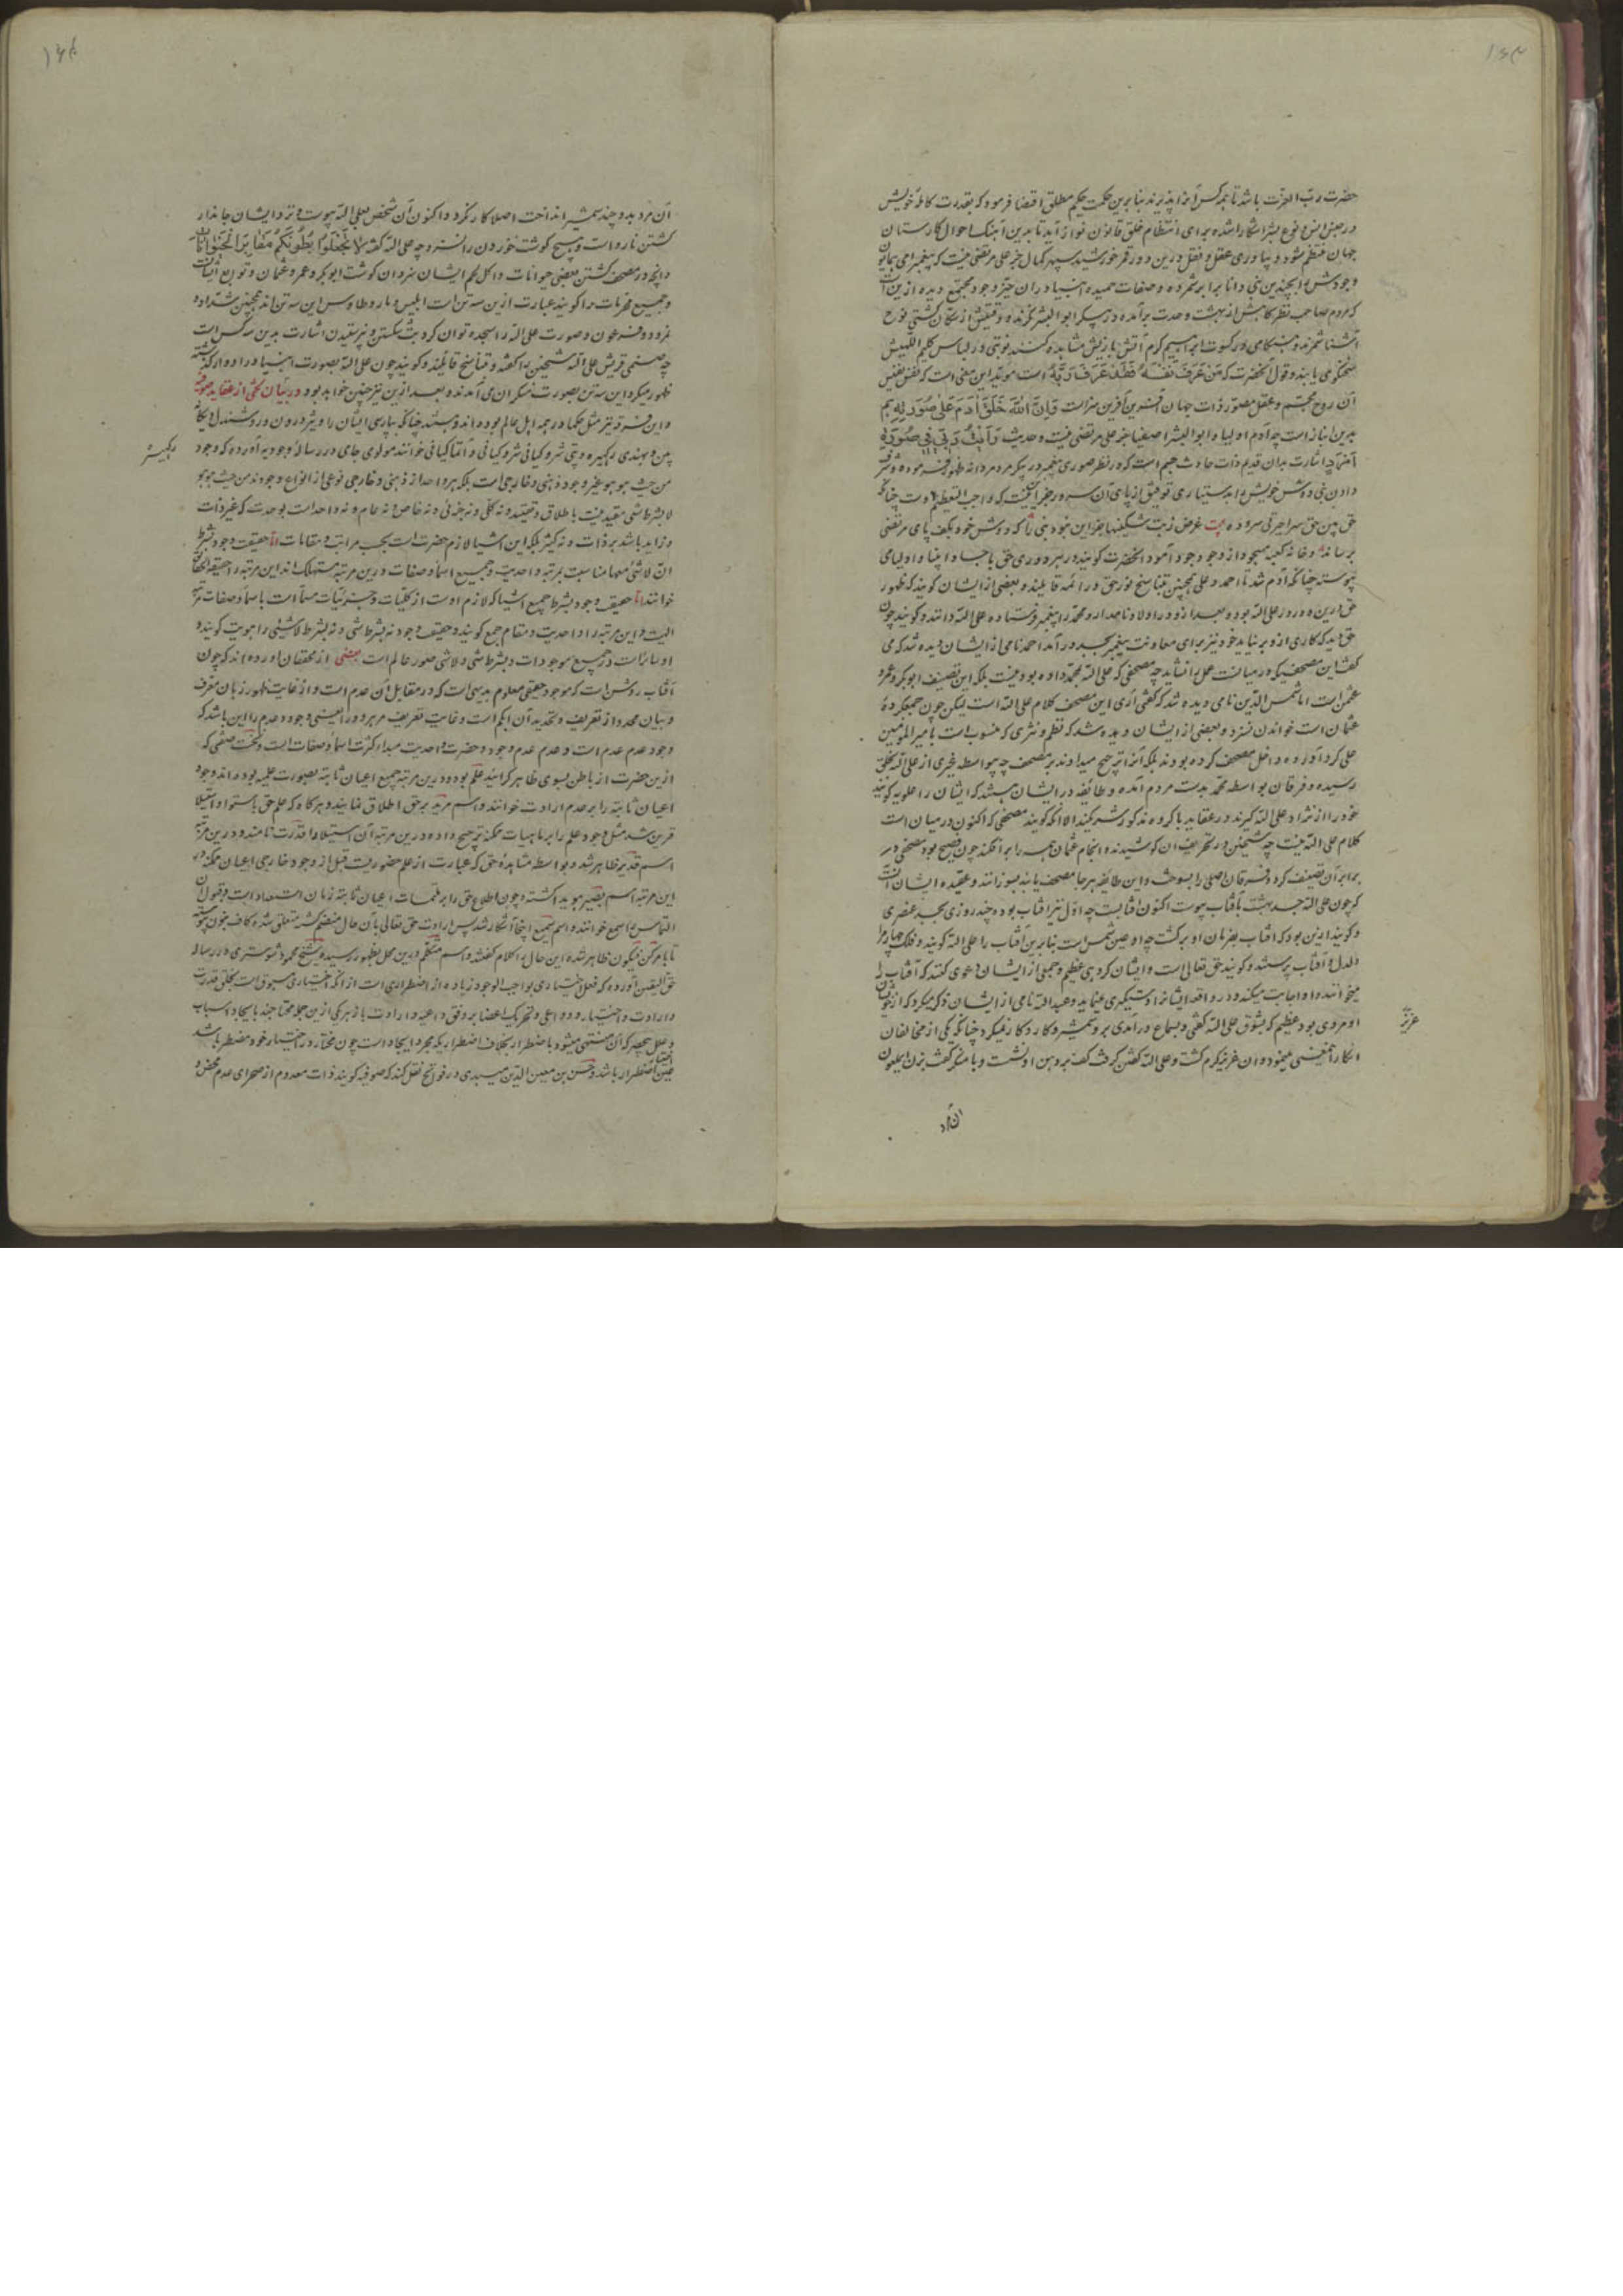 حضرت رب العزت باشد تا همه کس آنرا پذیرند بنابرین حکمت حکیم مطلق اقتضا فرمود که بقدرت کامله خویش
در جنس انس و نوع بشر آشکارا شده برای انتظام خلق قانون نو آراید تا بدین آهنگ احوال کارستان
جهان منتظم شود و بیاوری عقل و فضل درین دور قمر خورشید سپهر کمال جز علی مرتضی نیست که پیغمبر امی
وجودش را بچندین نبی دانا برابر شمرده و صفات حمیده انبیا در آن حیز وجود مجتمع دیده ازین
که مردم صاحب نظر گاهش از بهشت وحدت برآمده در پیکر ابوالبشر نگرند و وقتیش از سکان کشتی نوح
شمرند و هنگامی در کسوت ابراهیم گرم آتش بازیش مشاهده کنند نوبتی در لباس کلیم اللهیش
سخنگوی یابند و قول آنحضرت که من عرف نفسه فقد عرف ربه است موید این معنی است که نفس نفیس
آن روح مجسم و عقل مصور ذات جهان آفرین آفرین سزاست فان الله خلق آدم علی صورته هم
بدین انباز است چه آدم اولیا و ابوالبشر اصفیا جز علی مرتضی نیست و حدیث رایت ربی فی صورة
اشارت بدان قدیم ذات حادث جسم است که در نظر صوری پیغمبر در پیکر مرد مردانه ظهور فرموده و شرف
دادن نبی دوش خویش را بدستیاری توفیق از پای آن سرور
حق بین حق سرا حیرتی سروده بیت غرض ز بت شکنیها جز این نبود نبی را که دوش خود بکف پای مرتضی
برساند و خانه کعبه مسجود از وجود وجود آمود آنحضرت گویند در هر دوری حق باجساد انبیا و اولیا می
پیوسته چنانکه آدم شد تا احمد و علی همچنین تناسخ نور حق در ائمه قایلند و بعضی از ایشان گویند که ظهور
حق درین دوره علی الله بود و بعد از و در اولاد نامدار او محمد را پیغمبر فرستاده علی الله دانند و گویند چون
حق دید که کاری از و بر نیاید خود نیز برای معاونت پیغمبر بجسد درآمد احمد نامی از ایشان دیده شد که می
گفت این مصحف که در میانست عمل را نشاید چه مصحفی که علی الله بمحمد داده بود نیست بلکه این تصنیف ابوبکر و عمر و
عثمن است اما شمس الدین نامی دیده شد که گفتی آری این مصحف کلام علی الله است لیکن چون جمع کرده
عثمان است خواندن نسزد و بعضی از ایشان دیده شد که نظم و نثری که منسوب است بامیر المومنین
علی گرد آورده داخل مصحف کرده بودند بلکه آنرا ترجیح میدادند بر مصحف چه بیواسطه غیری از علی الله بخلق
رسیده و فرقان بواسطه محمد بدست مردم آمده و طائفه در ایشان هستند که ایشان را علویه گویند
خود را از نژاد علی الله گیرند در عقاید با گروه مذکور شریکند الا آنکه گویند مصحفی که اکنون در میان است
کلام علی الله نیست چه شیخین در تحریف آن کوشیدند و انجام عثمان همه را برافکند چون فصیح بود مصحفی در
برابر آن تصنیف کرد و فرقان اصلی را بسوخت و این طائفه هر جا مصحف یابند بسوزانند و عقیده ایشان آنست
که چون علی الله جسد بهشت بآفتاب پیوست اکنون آفتابست چه اول نیز آفتاب بوده چند روزی بجسد عنصری
و گویند ازین بود که آفتاب بفرمان او برگشت چه او عین شمس است بنابرین آفتاب را علی الله گویند و فلک چهارم را
دلدل و آفتاب پرستند و گویند حق تعالی است و ایشان گروهی عظیم و جمعی از ایشان دعوی کنند که آفتاب را
میخوانند و او اجابت میکند و در واقعه ایشانرا دستگیری مینماید و عبد الله نامی از ایشان ذکر میکرد که
او مردی بود عظیم که بشوق علی الله گفتی و بسماع درآمدی برو شمشیر و کارد کار نمیکرد چنانکه یکی از مخالفان
انکار آنمعنی مینمود و آن عزیز گرم گشت و علی الله گفتن گرفت کف بر دهن او نشست و با منکر گفت بزن ای ملعون
عزیز
آن مرد
آن مرد بدو چند شمشیر انداخت اصلا کار نکرد و اکنون آن شخص بعلی الله پیوست و نزد ایشان جاندار
کشتن نارواست و هیچ گوشت خوردن را نسزد چه علی الله گفته لا تجعلوا بطونکم مقابر الحیوانات
و آنچه در مصحف کشتن بعضی حیوانات و اکل لحم ایشان هست آن گوشت ابوبکر و عمر و عثمان و توابع ایشانست
و جمیع محرمات را گویند عبارت ازین سه تن است ابلیس و مار و طاوس این سه تن اند همچنین شداد و
نمرود و فرعون و صورت علی الله را سجده توان کرد بت شکستن و نپرستیدن اشارت بدین سه کس است
چه صنمی قریش علی الله شیخین را گفته و تناسخ قایلند و گویند چون علی الله بصورت انبیا در ادوار گذشته
ظهور میکرد این سه تن بصورت منکران می آمدند و بعد ازین نیز چنین خواهد بود در بیان لختی از عقاید صوفیه
و این فرقه نیز مثل حکما در همه اهل عالم بوده اند و هستند چنانکه بپارسی ایشان را ویژه درون و روشندل
بین و بهندی رکهیسر و خوانند مولوی جامی در رساله وجودیه آورده که وجود
من حیث هو هو غیر وجود ذهنی و خارجی است بلکه هر واحد از ذهنی و خارجی نوعی از انواع وجودند من حیث هو هو
لا بشرط شی مقید نیست باطلاق و تقیید و نه کلی و نه جزئی و نه خاص و نه عام و نه واحد است بوحدت که غیر ذات
و زاید باشد بر ذات و نه کثیر بلکه این اشیا لازم حضرت است بحسب مراتب و مقامات اما حقیقت وجود بشرط
ان لا شئ معها مناسبت بمرتبه واحدیت و جمیع اسما و صفات درین مرتبه مستهلک اند این مرتبه را حقیقة الحقایق
خوانند اما حقیقت وجود بشرط جمیع اشیا که لازم اوست از کلیات و جزئیات مسما است باسما و صفات مرتبه
الهیت و این مرتبه را واحدیت و مقام جمع گویند و حقیقت وجود نه بشرط شی و نه بشرط لاشئی را هویت گویند و
او ساریست در جمیع موجودات و بشرط شی و لاشی صور عالم است بعضی از محققان آورده اند که چون
آفتاب روشن است که موجود حقیقی معلوم بدیهی است که در مقابل آن عدم است و از غایت ظهور زبان معرف
و بیان محدد از تعریف و تحدید آن ابکم است و غایت تعریف مر هر دو را یعنی وجود و عدم را این باشد که
وجود عدم عدم است و عدم عدم وجود و حضرت واحدیت مبدا کثرت اسما و صفات است و نخست صفتی که
ازین حضرت از باطن بسوی ظاهر گرائید علم بود و درین مرتبه جمیع اعیان ثابته بصورت علمیه بودند
اعیان ثابته را بر عدم ارادت خوانند و اسم مرید بر حق اطلاق نمایند و هرگاه که علم حق باستوا و استیلا
قرین شد مثل وجود علم را بر ماهیات ممکنه ترجیح داده درین مرتبه آن استیلا را قدرت نامند و درین مرتبه
اسم قدیر ظاهر شد و بواسطه مشاهده حق که عبارت از علم حضوریت قبل از وجود خارجی اعیان ممکنه در
این مرتبه اسم بصیر هویدا گشته و چون اطلاع حق را بر ملتمسات اعیان ثابته زمان استعداد است و قبول آن
التماس را سمع خوانند و اسم سمیع اینجا آشکار شد پس ارادت حق تعالی بآن حال منضم گشته متعلق شده کاف بنون پیوسته
تا بامر کن فیکون ظاهر شده این حال را کلام گفتند و اسم متکلم درین محل بظهور رسیده شیخ محمود شوستری در رساله
حق الیقین آورده که فعل اختیاری بواجب الوجود زیاده از اضطراری است از آنکه اختیاری مسبوق است بخلق قدرت
و ارادت و اختیار و دواعی و تحریک اعضا بر وفق داعیه و ارادت باز هر یکی ازین جمله محتاجند بایجاد اسباب
و علل که منتهی میشود باضطرار بخلاف اضطرار که مجرد ایجاد است چون مختار در اختیار خود مضطر باشد
عین اضطرار باشد و حسن بن معین الدین میبدی در فواتح نقل کند که صوفیه گویند ذات معدوم از صحرای عدم محض و
رکهیسر